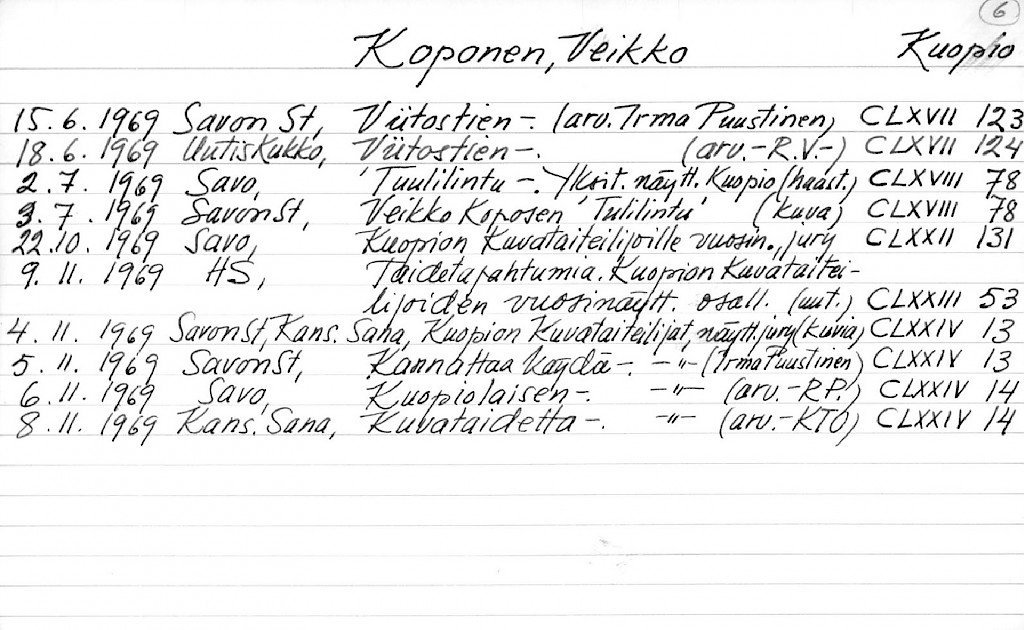 6
Koponen, Veikko Kuopio
15.6.1969 Savon St, Viitostien-. (arv. Irma Puustinen) CLXVII 123
18.6.1969 Uutiskukko, Viitostien-. (arv.-R.V.-) CLXVII 124
2.7.1969 Savo, 'Tuulilintu-. Yksit. näytt. Kuopio (haast.) CLXVIII 78
3.7.1969 Savon St, Veikko Koposen 'Tulilintu' (kuva) CLXVIII 78
22.10.1969 Savo, Kuopion Kuvataiteilijoille vuosin., jury CLXXII 131
9.11.1969 HS, Taidetapahtumia. Kuopion Kuvataitei-
lijoiden vuosinäytt. osall. (uut.) CLXXIII 53
4.11.1969 Savon St, Kans. Sana, Kuopion Kuvataiteilijat, näytt.jury (kuvia) CLXXIV 13
5.11.1969 Savon St, Kannattaa käydä-. -"- (Irma Puustinen) CLXXIV 13
6.11.1969 Savo, Kuopiolaisen-. -"- (arv.-R.P.) CLXXIV 14
8.11.1969 Kans. Sana, Kuvataidetta-. -"- (arv.-KTO) CLXXIV 14